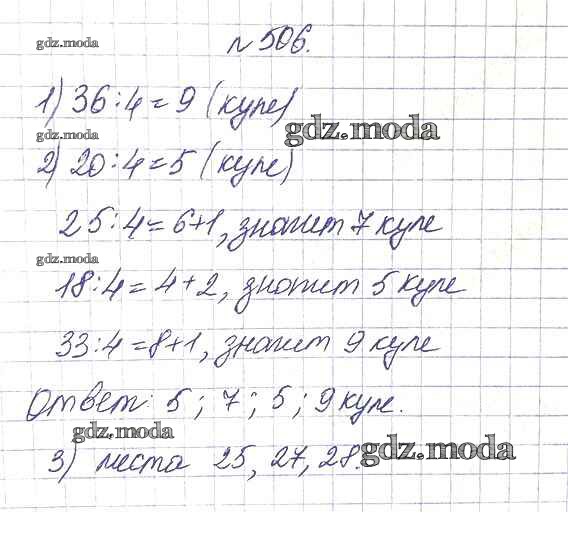 № 506.
gdz.moda
1) 36:4=9 (купе)
gdz.moda
gdz.moda
2) 20:4=5 (купе)
25:4=6+1, значит 7 купе
gdz.moda
18:4=4+2, значит 5 купе
33:4=8+1, значит 9 купе
Ответ: 5; 7; 5; 9 купе.
gdz.moda
3) места 25, 27, 28.
gdz.moda